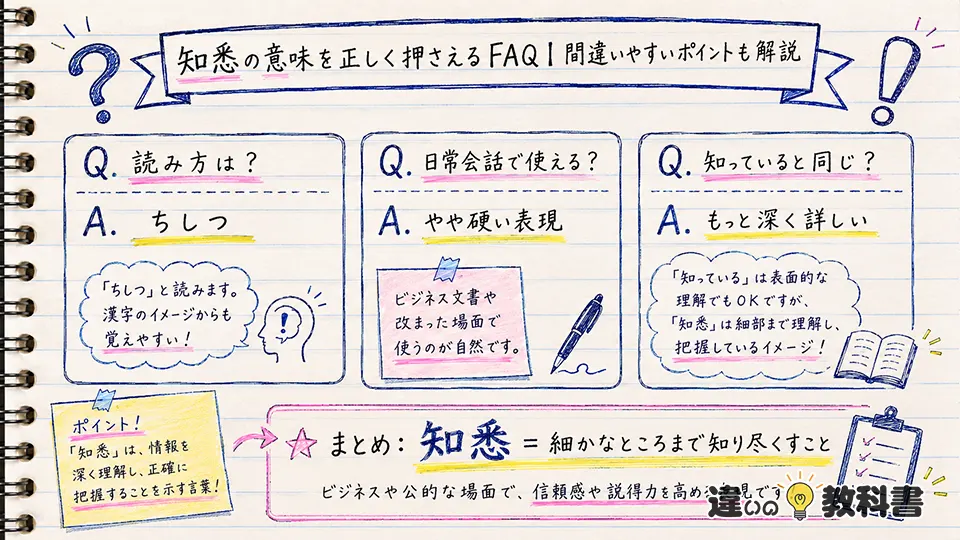 知悉の意味を正しく押さえるFAQ|間違いやすいポイントも解説
Q. 読み方は?
A. ちしつ
「ちしつ」と読みます。
漢字のイメージからも
覚えやすい!
Q. 日常会話で使える?
A. やや硬い表現
ビジネス文書や
改まった場面で
使うのが自然です。
Q. 知っていると同じ?
A. もっと深く詳しい
「知っている」は表面的な
理解でもOKですが、
「知悉」は細部まで理解し、
把握しているイメージ!
ポイント!
「知悉」は、情報を
深く理解し、正確に
把握することを示す言葉!
まとめ: 知悉 = 細かなところまで知り尽くすこと
ビジネスや公的な場面で、信頼感や説得力を高め
見です
違いの教科書